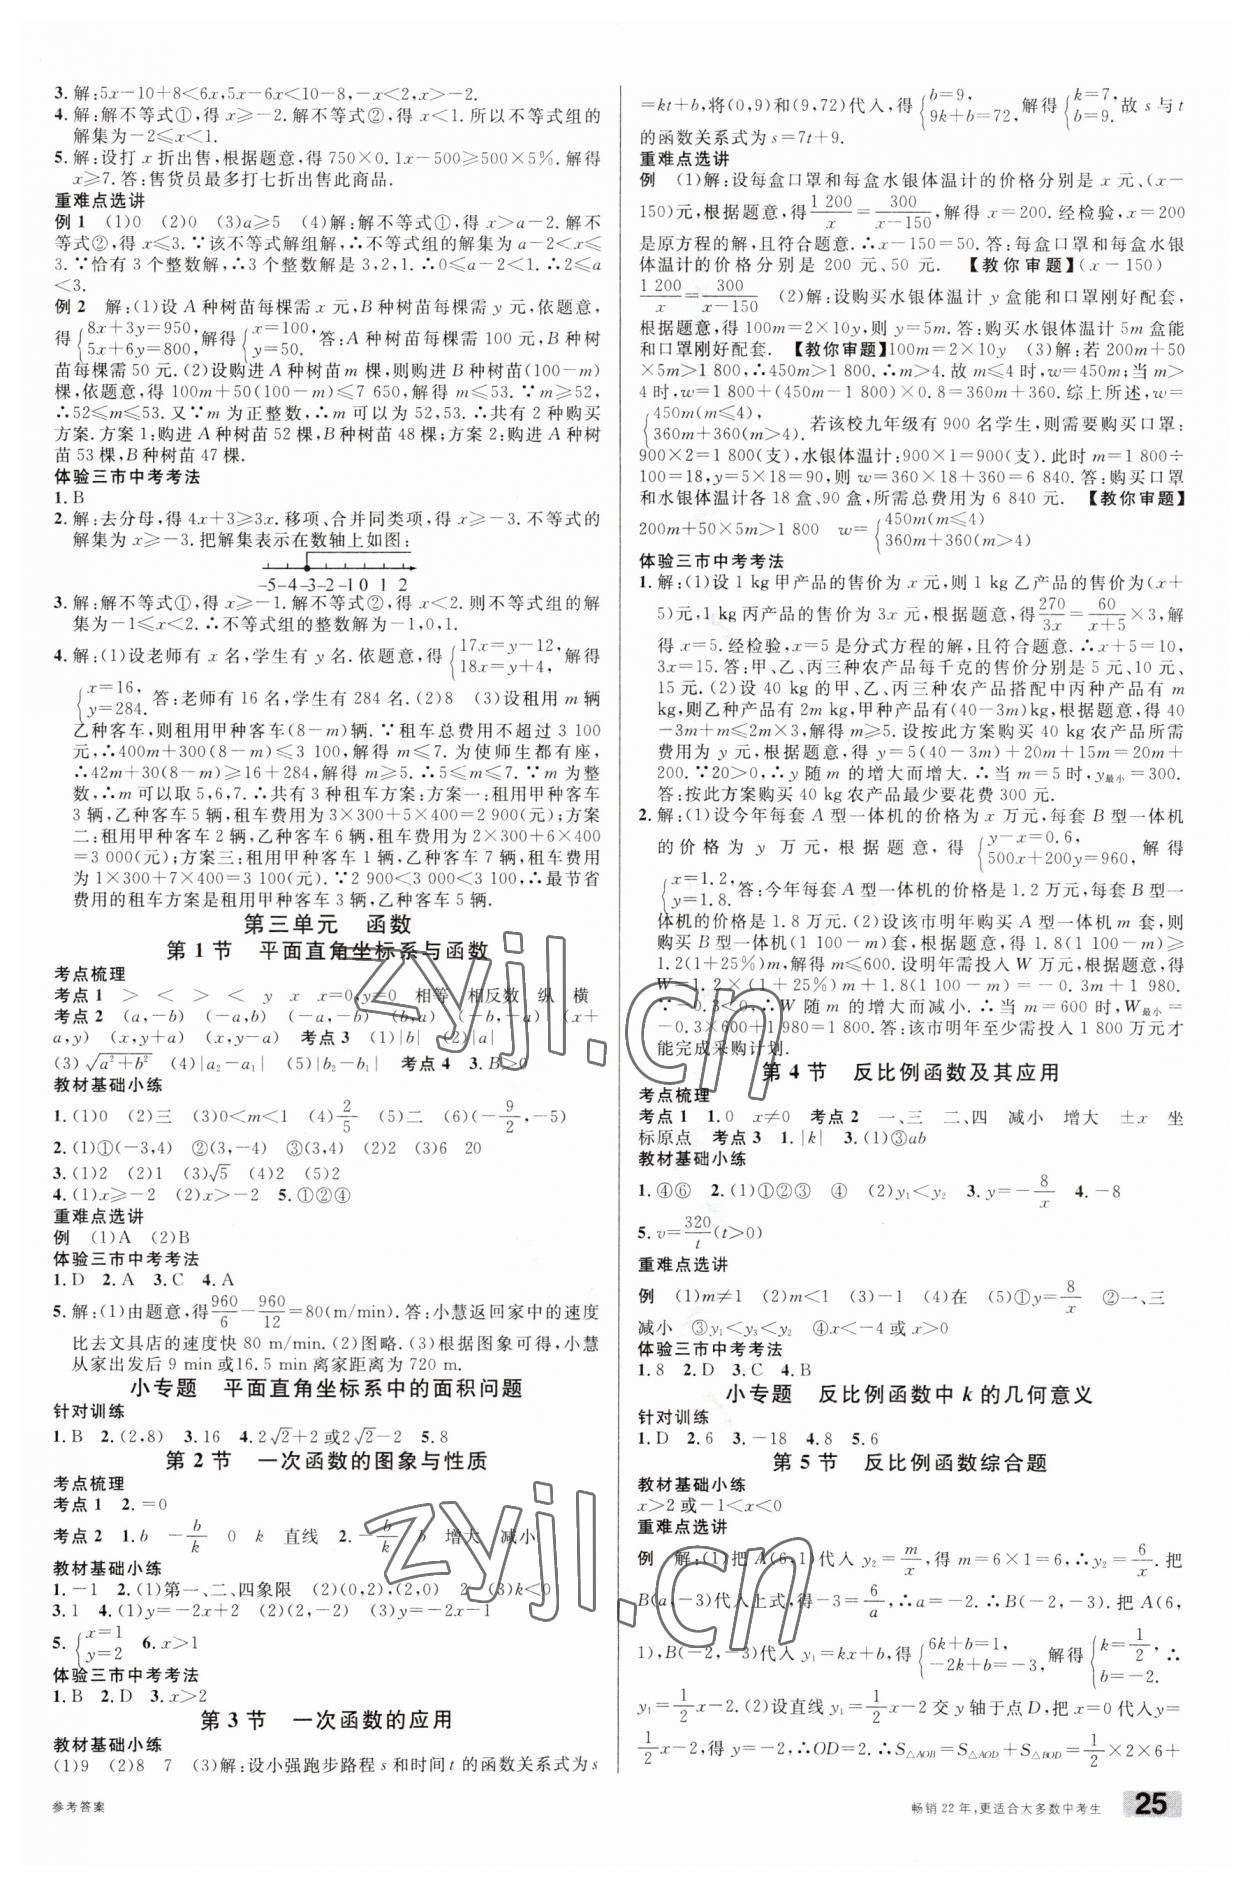 3. 解:5x-10+8<6x,5x-6x<10-8,-x<2,x>-2.
4. 解:解不等式①,得 x≥-2. 解不等式②,得 x<1. 所以不等式组的
解集为-2≤x<1.
5. 解:设打 x 折出售,根据题意,得 750×0.1x-500≥500×5%. 解得
x≥7. 答:售货员最多打七折出售此商品.
重难点选讲
例 1 (1)0 (2)0 (3)a≥5 (4)解:解不等式①,得 x>a-2. 解不
等式②,得 x≤3. ∵该不等式组解,∴不等式组的解集为 a-2<x≤
3. ∵恰有 3 个整数解,∴3 个整数解是 3,2,1. ∴0≤a-2<1. ∴2≤a
<3.
例 2 解:(1)设 A 种树苗每棵需 x 元,B 种树苗每棵需 y 元,依题意,
得{8x+3y=950, 5x+6y=800,解得{x=100, y=50. 答:A 种树苗每棵需 100 元,B 种树
苗每棵需 50 元.(2)设购进 A 种树苗 m 棵,则购进 B 种树苗(100-m)
棵,依题意,得 100m+50(100-m)≤7 650,解得 m≤53. ∵m≥52,
∴52≤m≤53. 又∵m 为正整数,∴m 可以为 52,53. ∴共有 2 种购买
方案. 方案 1:购进 A 种树苗 52 棵,B 种树苗 48 棵;方案 2:购进 A 种树
苗 53 棵,B 种树苗 47 棵.
体验三市中考考法
1. B
2. 解:去分母,得 4x+3≥3x. 移项、合并同类项,得 x≥-3. 不等式的
解集为 x≥-3. 把解集表示在数轴上如图:
-5-4-3-2-1 0 1 2
3. 解:解不等式①,得 x≥-1. 解不等式②,得 x<2. 则不等式组的解
集为-1≤x<2. ∴不等式组的整数解为-1,0,1.
4. 解:(1)设老师有 x 名,学生有 y 名. 依题意,得{17x=y-12, 18x=y+4, 解得
{x=16, y=284. 答:老师有 16 名,学生有 284 名.(2)8 (3)设租用 m 辆
乙种客车,则租用甲种客车(8-m)辆. ∵租车总费用不超过 3 100
元,∴400m+300(8-m)≤3 100,解得 m≤7. 为使师生都有座,
∴42m+30(8-m)≥16+284,解得 m≥5. ∴5≤m≤7. ∵m 为整
数,∴m 可以取 5,6,7. ∴共有 3 种租车方案:方案一:租用甲种客车
3 辆,乙种客车 5 辆,租车费用为 3×300+5×400=2 900(元);方案
二:租用甲种客车 2 辆,乙种客车 6 辆,租车费用为 2×300+6×400
=3 000(元);方案三:租用甲种客车 1 辆,乙种客车 7 辆,租车费用为
1×300+7×400=3 100(元). ∵2 900<3 000<3 100,∴最节省
费用的租车方案是租用甲种客车 3 辆,乙种客车 5 辆.
第三单元 函数
第 1 节 平面直角坐标系与函数
考点梳理
考点 1 > < > < y x x=0,y=0 相等 相反数 纵 横
考点 2 (a,-b) (-a,b) (-a,-b) (b,a) (-b,-a) (x+
a,y) (x,y+a) (x,y-a) 考点 3 (1)|b| (2)|a|
(3)√(a²+b²) (4)|a₂-a₁| (5)|b₂-b₁| 考点 4 3. B>0
教材基础小练
1. (1)0 (2)三 (3)0<m<1 (4)2/5 (5)二 (6)(-9/2,-5)
2. (1)①(-3,4) ②(3,-4) ③(3,4) (2)6 20
3. (1)2 (2)1 (3)√5 (4)1
4. (1)x≥-2 (2)x>-2 5. ①②④
重难点选讲
例 (1)A (2)B
体验三市中考考法
1. D 2. A 3. C 4. A
5. 解:(1)由题意,得960/6-960/12=80(m/min). 答:小慧返回家中的速度
比去文具店的速度快 80 m/min.(2)图略.(3)根据图象可得,小慧
从家出发后 9 min 或16.5 min 离家距离为 720 m.
小专题 平面直角坐标系中的面积问题
针对训练
1. B 2. (2,8) 3. 16 4. 2√2+2或2√2-2 5. 8
第 2 节 一次函数的图象与性质
考点梳理
考点 1 2. =0
考点 2 1. b -b/k 0 k 直线 2. -b/k b 增大 减小
教材基础小练
1. -1 2. (1)第一、二、四象限 (2)(0,2),(2,0) 2 (3)k<0
3. 1 4. (1)y=-2x+2 (2)y=-2x-4
5. {x=1 y=2 6. x>1
体验三市中考考法
1. B 2. D 3. x>2
第 3 节 一次函数的应用
教材基础小练
(1)9 (2)8 7 (3)解:设小强跑步路程 s 和时间 t 的函数关系式为 s
=kt+b,将(0,9)和(9,72)代入,得{b=9, 9k+b=72, 解得{k=7, b=9. 故 s 与 t
的函数关系式为 s=7t+9.
重难点选讲
例 (1)解:设每盒口罩和每盒水银体温计的价格分别是 x 元、(x-
150)元,根据题意,得1 200/x=300/(x-150),解得 x=200. 经检验,x=200
是原方程的解,且符合题意. ∴x-150=50. 答:每盒口罩和每盒水银
体温计的价格分别是 200 元、50 元. 【教你审题】(x-150)
1 200/x=300/(x-150) (2)解:设购买水银体温计 y 盒能和口罩刚好配套,
根据题意,得 100m=2×10y,则 y=5m. 答:购买水银体温计 5m 盒能
和口罩刚好配套. 【教你审题】100m=2×10y (3)解:若 200m+50
×5m>1 800,∴450m>1 800. ∴m>4. 故 m≤4 时,w=450m;当 m>
4 时,w=1 800+(450m-1 800)×0.8=360m+360. 综上所述,w=
{450m(m≤4), 360m+360(m>4). 若该校九年级有 900 名学生,需购买口罩:
900×2=1 800(支),水银体温计:900×1=900(支). 此时 m=1 800÷
100=18,y=5×18=90. ∴w=360×18+360=6 840. 答:购买口罩
和水银体温计各 18 盒、90 盒,所需总费用为 6 840 元. 【教你审题】
200m+50×5m>1 800 w={450m(m≤4) 360m+360(m>4)
体验三市中考考法
1. 解:(1)设 1 kg 甲产品的售价为 x 元,则 1 kg 乙产品的售价为(x+
5)元,1 kg 丙产品的售价为 3x 元,根据题意,得270/3x=60/(x+5)×3,解
得 x=5. 经检验,x=5 是分式方程的解,且符合题意. ∴x+5=10,
3x=15. 答:甲、乙、丙三种农产品每千克的售价分别是 5 元、10 元、
15 元. (2)设 40 kg 的甲、乙、丙三种农产品搭配中丙种产品有 m
kg,则乙种产品有 2m kg,甲种产品有(40-3m)kg,根据题意,得 40
-3m+m≤2m×3,解得 m≥5. 设按此方案购买 40 kg 农产品所需
费用为 y 元,根据题意,得 y=5(40-3m)+20m+15m=20m+
200. ∵20>0,∴y 随 m 的增大而增大. ∴当 m=5 时,y最小=300.
答:按此方案购买 40 kg 农产品最少要花费 300 元.
2. 解:(1)设今年每套 A 型一体机的价格为 x 万元,每套 B 型一体机
的价格为 y 万元,根据题意,得{y-x=0.6, 500x+200y=960, 解得
{x=1.2, y=1.8. 答:今年每套 A 型一体机的价格是 1.2 万元,每套 B 型一
体机的价格是 1.8 万元. (2)设该市明年购买 A 型一体机 m 套,则
购买 B 型一体机(1 100-m)套,根据题意,得 1.8(1 100-m)≥
1.2(1+25%)m,解得 m≤600. 设明年需投入 W 万元,根据题意,得
W=1.2×(1+25%)m+1.8(1 100-m)=-0.3m+1 980.
∵-0.3<0,∴W 随 m 的增大而减小. ∴当 m=600 时,W最小=
-0.3×600+1 980=1 800. 答:该市明年至少需投入 1 800 万元才
能完成采购计划.
第 4 节 反比例函数及其应用
考点梳理
考点 1 1. 0 x≠0 考点 2 一、三 二、四 减小 增大 ±x 坐
标原点 考点 3 1. |k| 3. (1)③ab
教材基础小练
1. ④⑥ 2. (1)①②③ ④ (2)y₁<y₂ 3. y=-8/x 4. -8
5. v=320/t(t>0)
重难点选讲
例 (1)m≠1 (2)m<1 (3)-1 (4)在 (5)①y=8/x ②一、三
减小 ③y₁<y₃<y₂ ④x<-4或 x>0
体验三市中考考法
1. 8 2. D 3. C 4. B
小专题 反比例函数中 k 的几何意义
针对训练
1. D 2. 6 3. -18 4. 8 5. 6
第 5 节 反比例函数综合题
教材基础小练
x>2 或-1<x<0
重难点选讲
例 解:(1)把 A(6,1)代入 y₂=m/x,得 m=6×1=6,∴y₂=6/x. 把
B(a,-3)代入上式,得-3=6/a,∴a=-2. ∴B(-2,-3). 把 A(6,
1),B(-2,-3)代入 y₁=kx+b,得{6k+b=1, -2k+b=-3, 解得{k=1/2, b=-2. ∴
y₁=1/2x-2. (2)设直线 y₁=1/2x-2 交 y 轴于点 D,把 x=0 代入y=
1/2x-2,得 y=-2,∴OD=2. ∴S△AOB=S△AOD+S△BOD=1/2×2×6+
参考答案
畅销 22 年,更适合大多数中考生
25
zyjl.cn
zyjl.cn